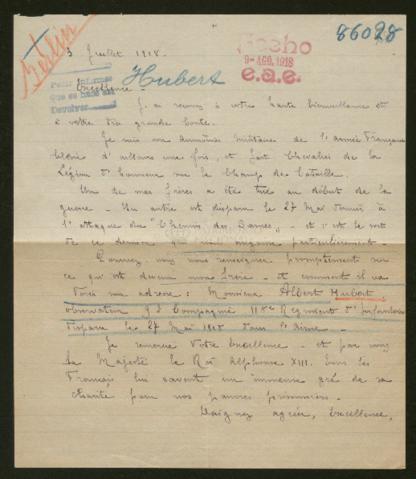 86028
Berlin
3 Juillet 1918.
Hecho
9 AGO. 1918
e.a.e.
Pedir informes
que se hace así
Devolver
Hubert
Excellence
J'ai recours à votre haute bienveillance et
à votre très grande bonté.
Je suis un aumônier militaire de l'armée Française
blessé d'ailleurs une fois, et fait Chevalier de la
Légion d'honneur sur le Champ de bataille.
Un de mes frères a été tué au début de la
guerre - Un autre est disparu le 27 Mai dernier à
l'attaque du "Chemin des Dames", - et c'est le sort
de ce dernier qui particulièrement -
Pourriez vous nous renseigner promptement sur
ce qu'est devenu mon frère - et comment il va
Voici son adresse : Monsieur Albert Hubert
observateur 9e Compagnie Régiment d'Infanterie
disparu le 27 Mai 1918 dans l'Aisne -
Je remercie Votre Excellence - et par vous
Sa Majesté le Roi Alphonse XIII. Tous les
Français lui savent un immense gré de sa
charité pour nos pauvres prisonniers -
Daignez agréer, Excellence,